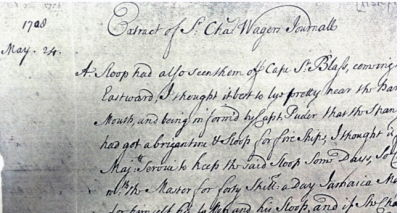 Extract of Sr. Chas. Wagers Journall
1708
May. 24.
A Sloop had also seen them of Cape St. Blass, coming
Eastward, I thought it best to lye pretty near the Har
Mouth, and being inform'd by Capt. Puder that the Span
had got a brigantine & Sloop for fire Ships, I thought
Majts. Service to keep the said Sloop Some Days, So
wth. the Master for forty Shill. a day Jamaica
for himself his and his Sloop, and if the